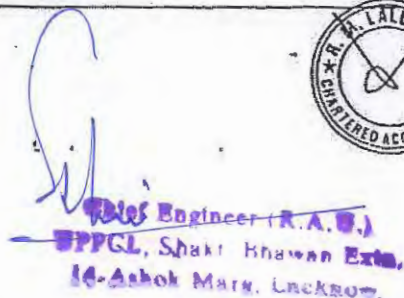 R. M. LALL
★ CHARTERED ACC
Chief Engineer (R.A.U.)
UPPCL, Shakti Bhawan Extn,
14-Ashok Marg, Lucknow.